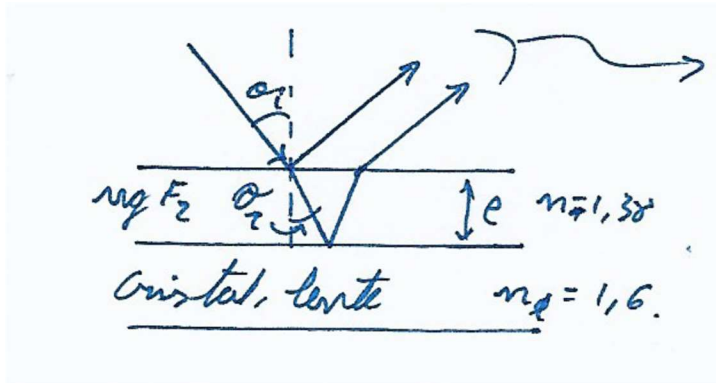 θi
mg F2 θr e n=1,38
cristal, lente nl = 1,6.